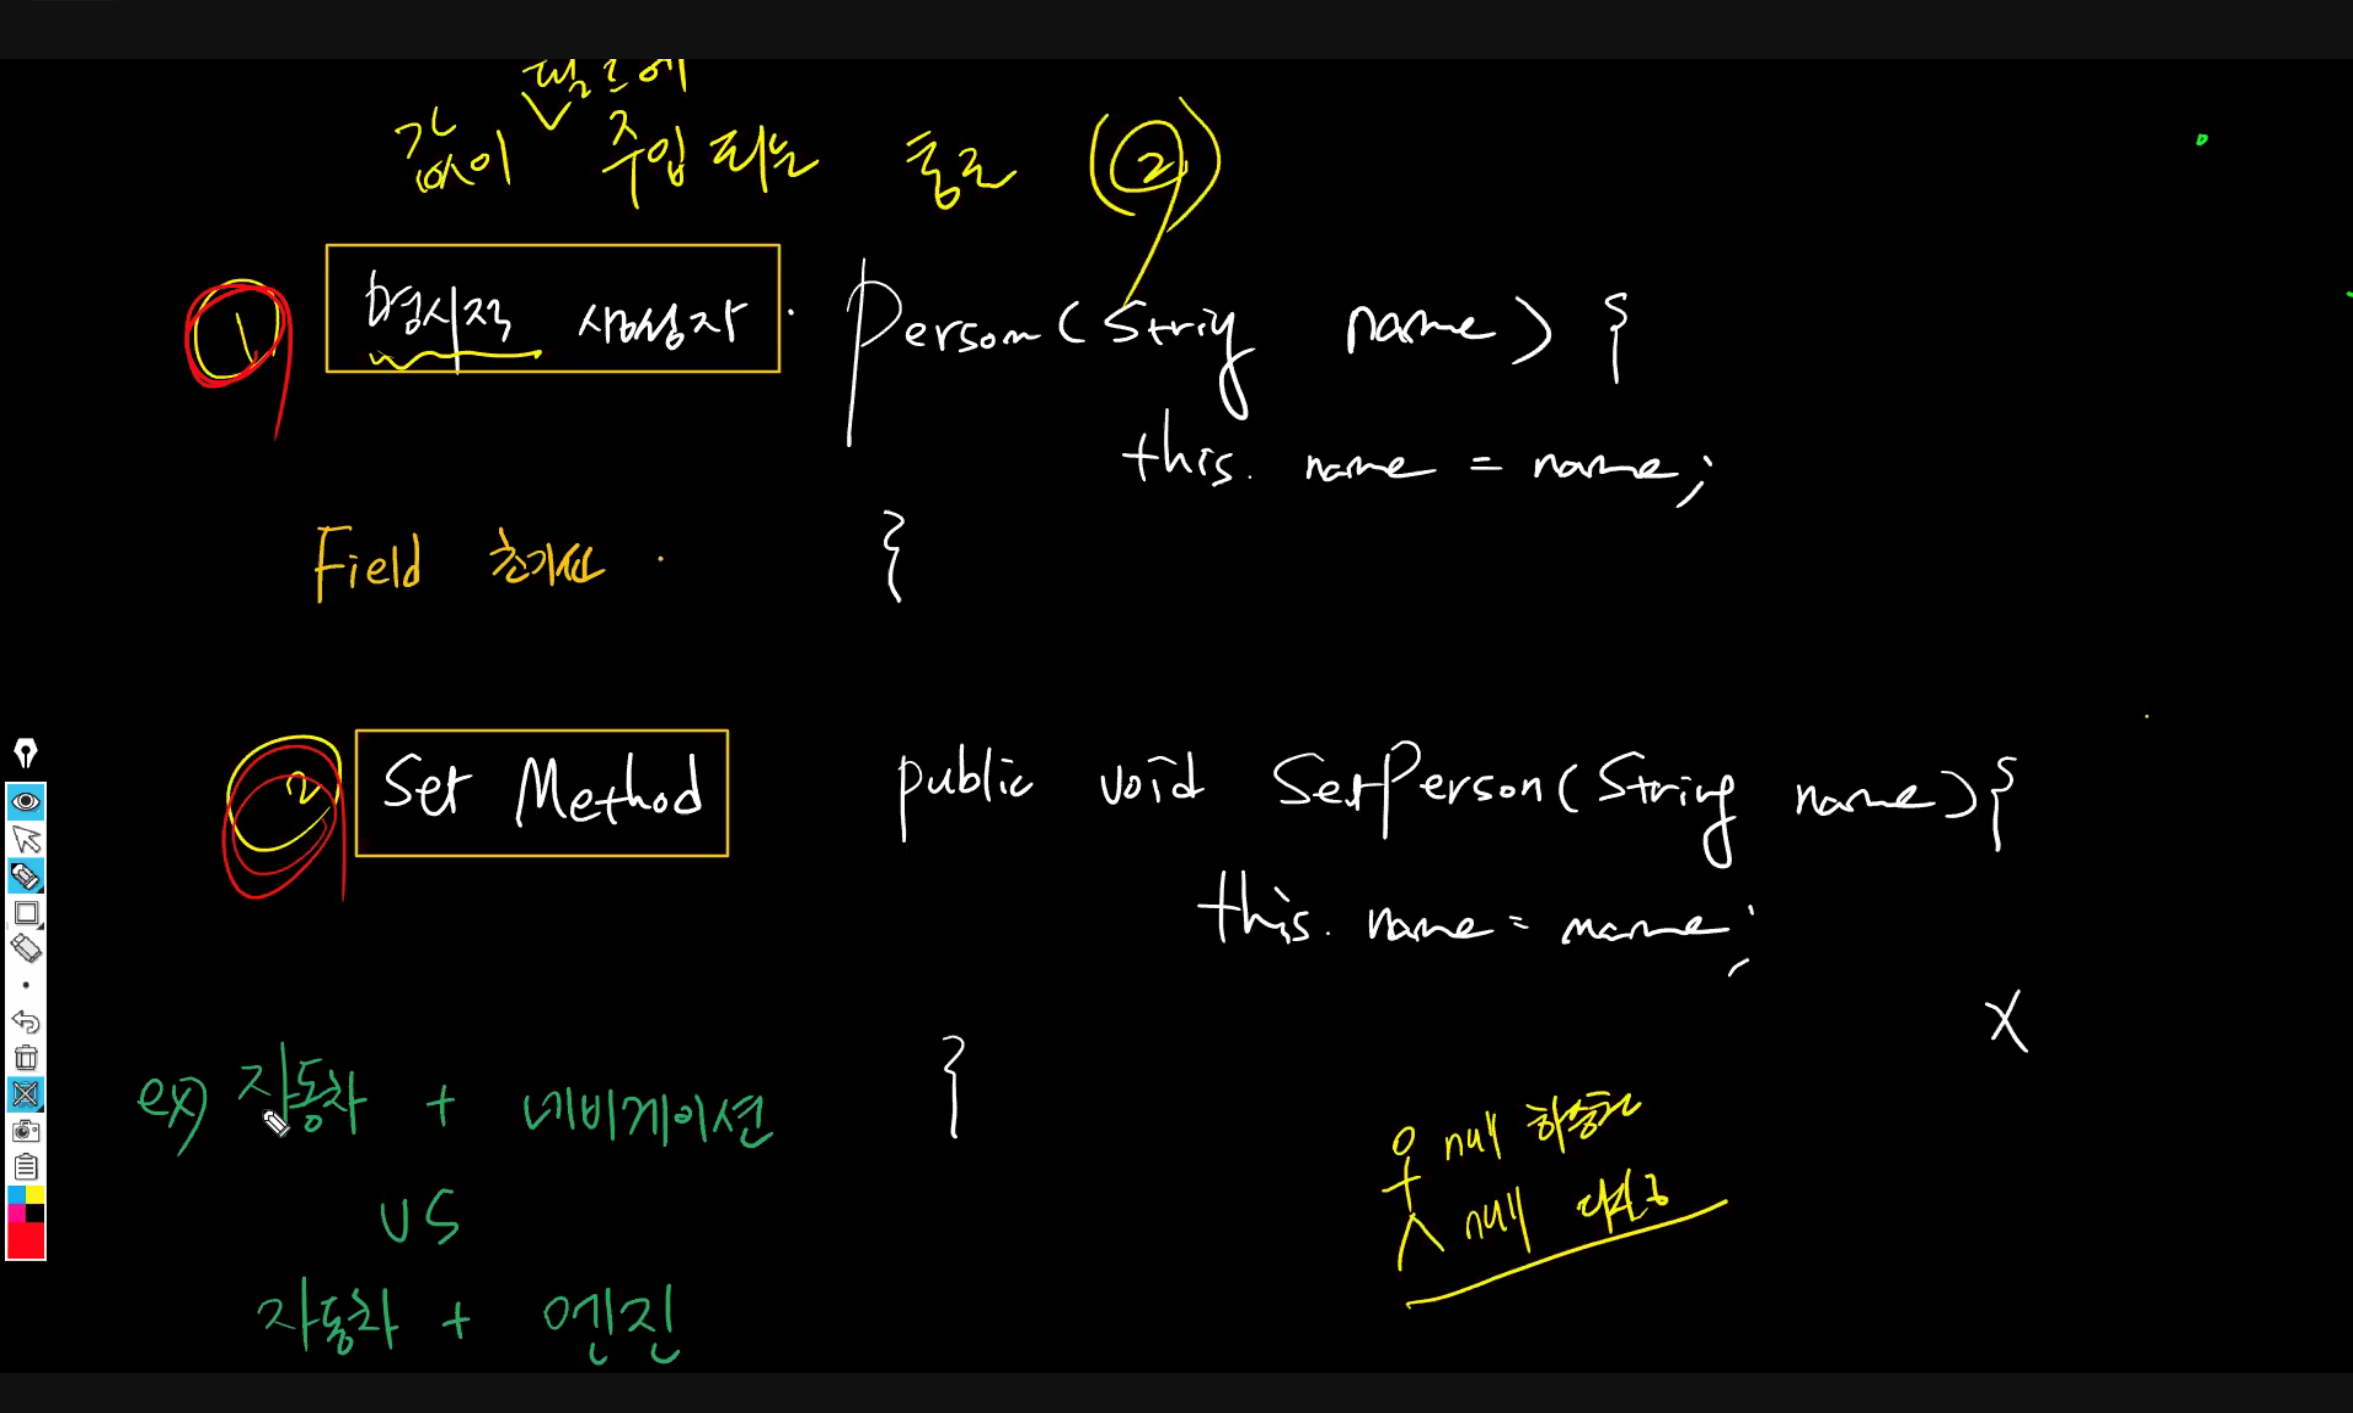 필드에
값이 주입 되는 종류 (2)
1 명시적 생성자. Person(String name) {
this. name = name;
Field 초기화.
}
2 Set Method public void SetPerson(String name){
this. name = name;
}
X
ex) 자동차 + 네비게이션
VS
자동차 + 엔진
null 하정우
null